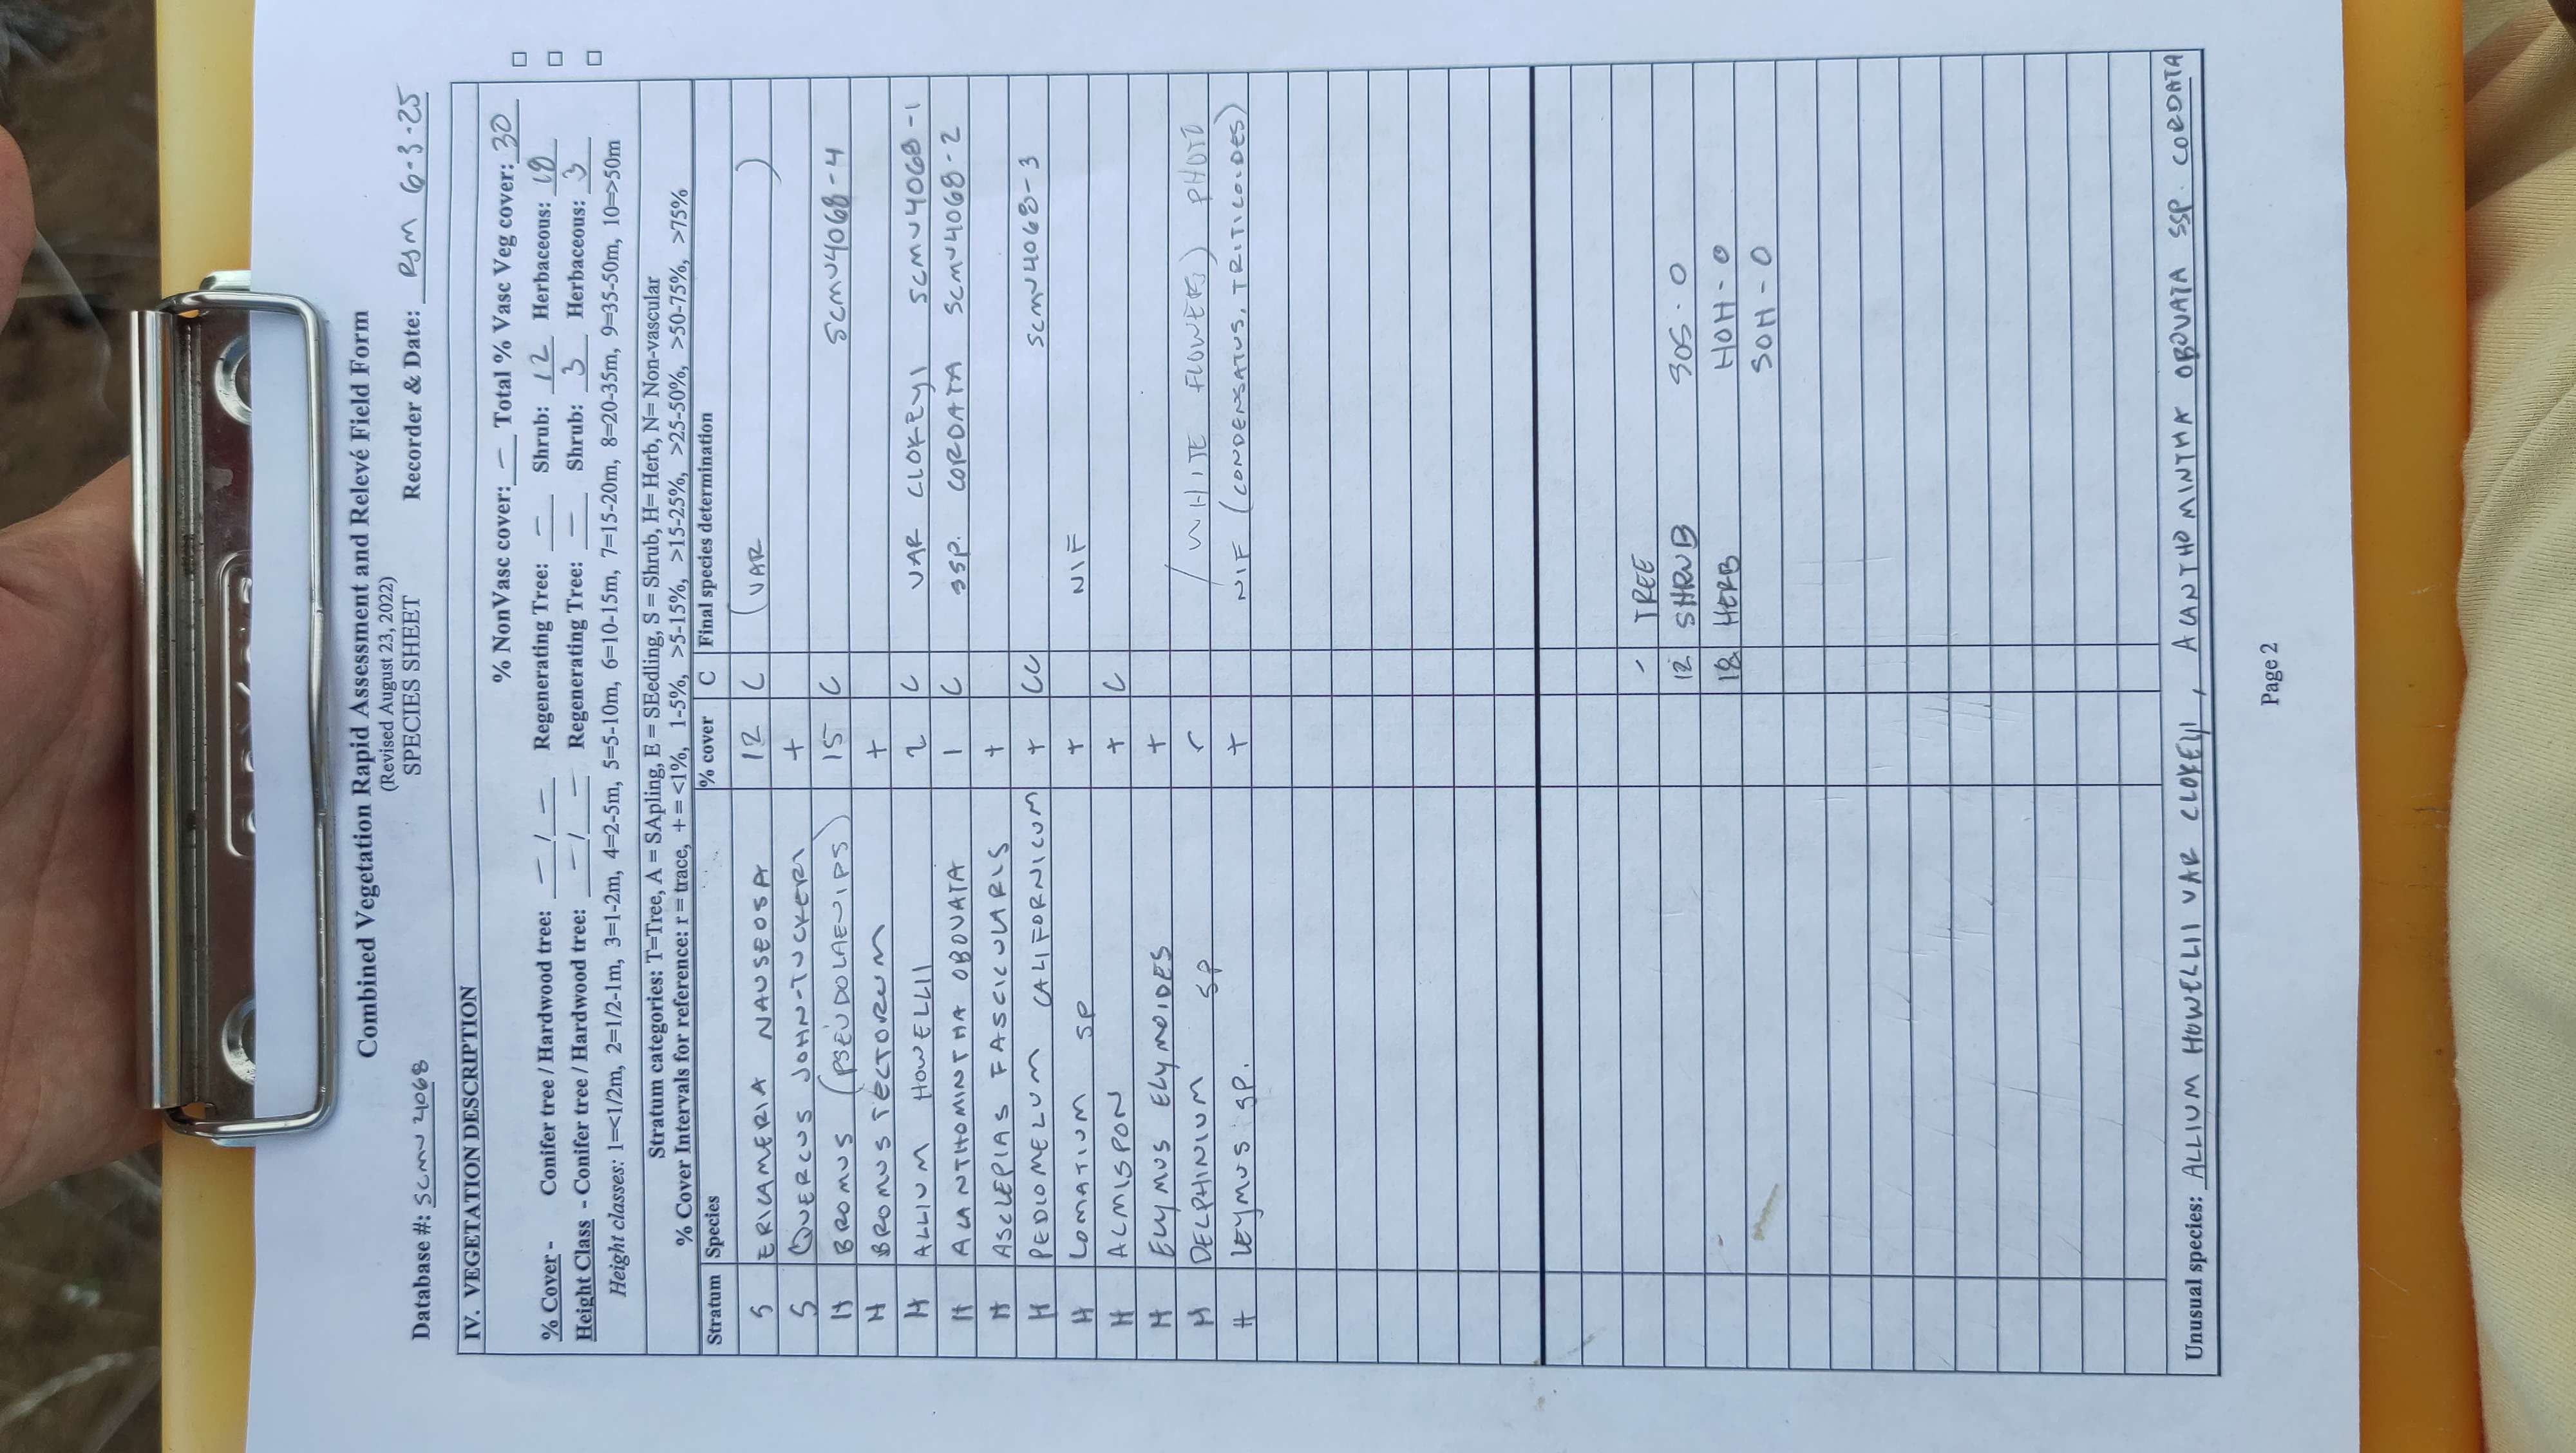 Combined Vegetation Rapid Assessment and Relevé Field Form
(Revised August 23, 2022)
SPECIES SHEET
Database #: SCMN4068 Recorder & Date: RJM 6-3-25
IV. VEGETATION DESCRIPTION
% NonVasc cover: — Total % Vasc Veg cover: 30
% Cover - Conifer tree / Hardwood tree: — / — Regenerating Tree: — Shrub: 12 Herbaceous: 18
Height Class - Conifer tree / Hardwood tree: — / — Regenerating Tree: — Shrub: 3 Herbaceous: 3
Height classes: 1=<1/2m, 2=1/2-1m, 3=1-2m, 4=2-5m, 5=5-10m, 6=10-15m, 7=15-20m, 8=20-35m, 9=35-50m, 10=>50m
Stratum categories: T=Tree, A = SApling, E = SEedling, S = Shrub, H= Herb, N= Non-vascular
% Cover Intervals for reference: r = trace, + = <1%, 1-5%, >5-15%, >15-25%, >25-50%, >50-75%, >75%
Stratum Species % cover C Final species determination
S ERICAMERIA NAUSEOSA 12 C (VAR )
S QUERCUS JOHN-TUCKERI +
H BROMUS (PSEUDOLAEVIPS) 15 C SCMN4068-4
H BROMUS TECTORUM +
H ALLIUM HOWELLII 2 C VAR CLOKEYI SCMN4068-1
H ACANTHOMINTHA OBOVATA 1 C SSP. CORDATA SCMN4068-2
H ASCLEPIAS FASCICULARIS +
H PEDIOMELUM CALIFORNICUM + CC SCMN4068-3
H LOMATIUM SP + NIF
H ACMISPON + C
H ELYMUS ELYMOIDES +
H DELPHINIUM SP r (WHITE FLOWERS) PHOTO
H LEYMUS SP. + NIF (CONDENSATUS, TRITICOIDES)
- TREE
12 SHRUB SOS-0
18 HERB HOH-0
SOH-0
Unusual species: ALLIUM HOWELLII VAR CLOKEYI, ACANTHOMINTHA OBOVATA SSP. CORDATA
Page 2